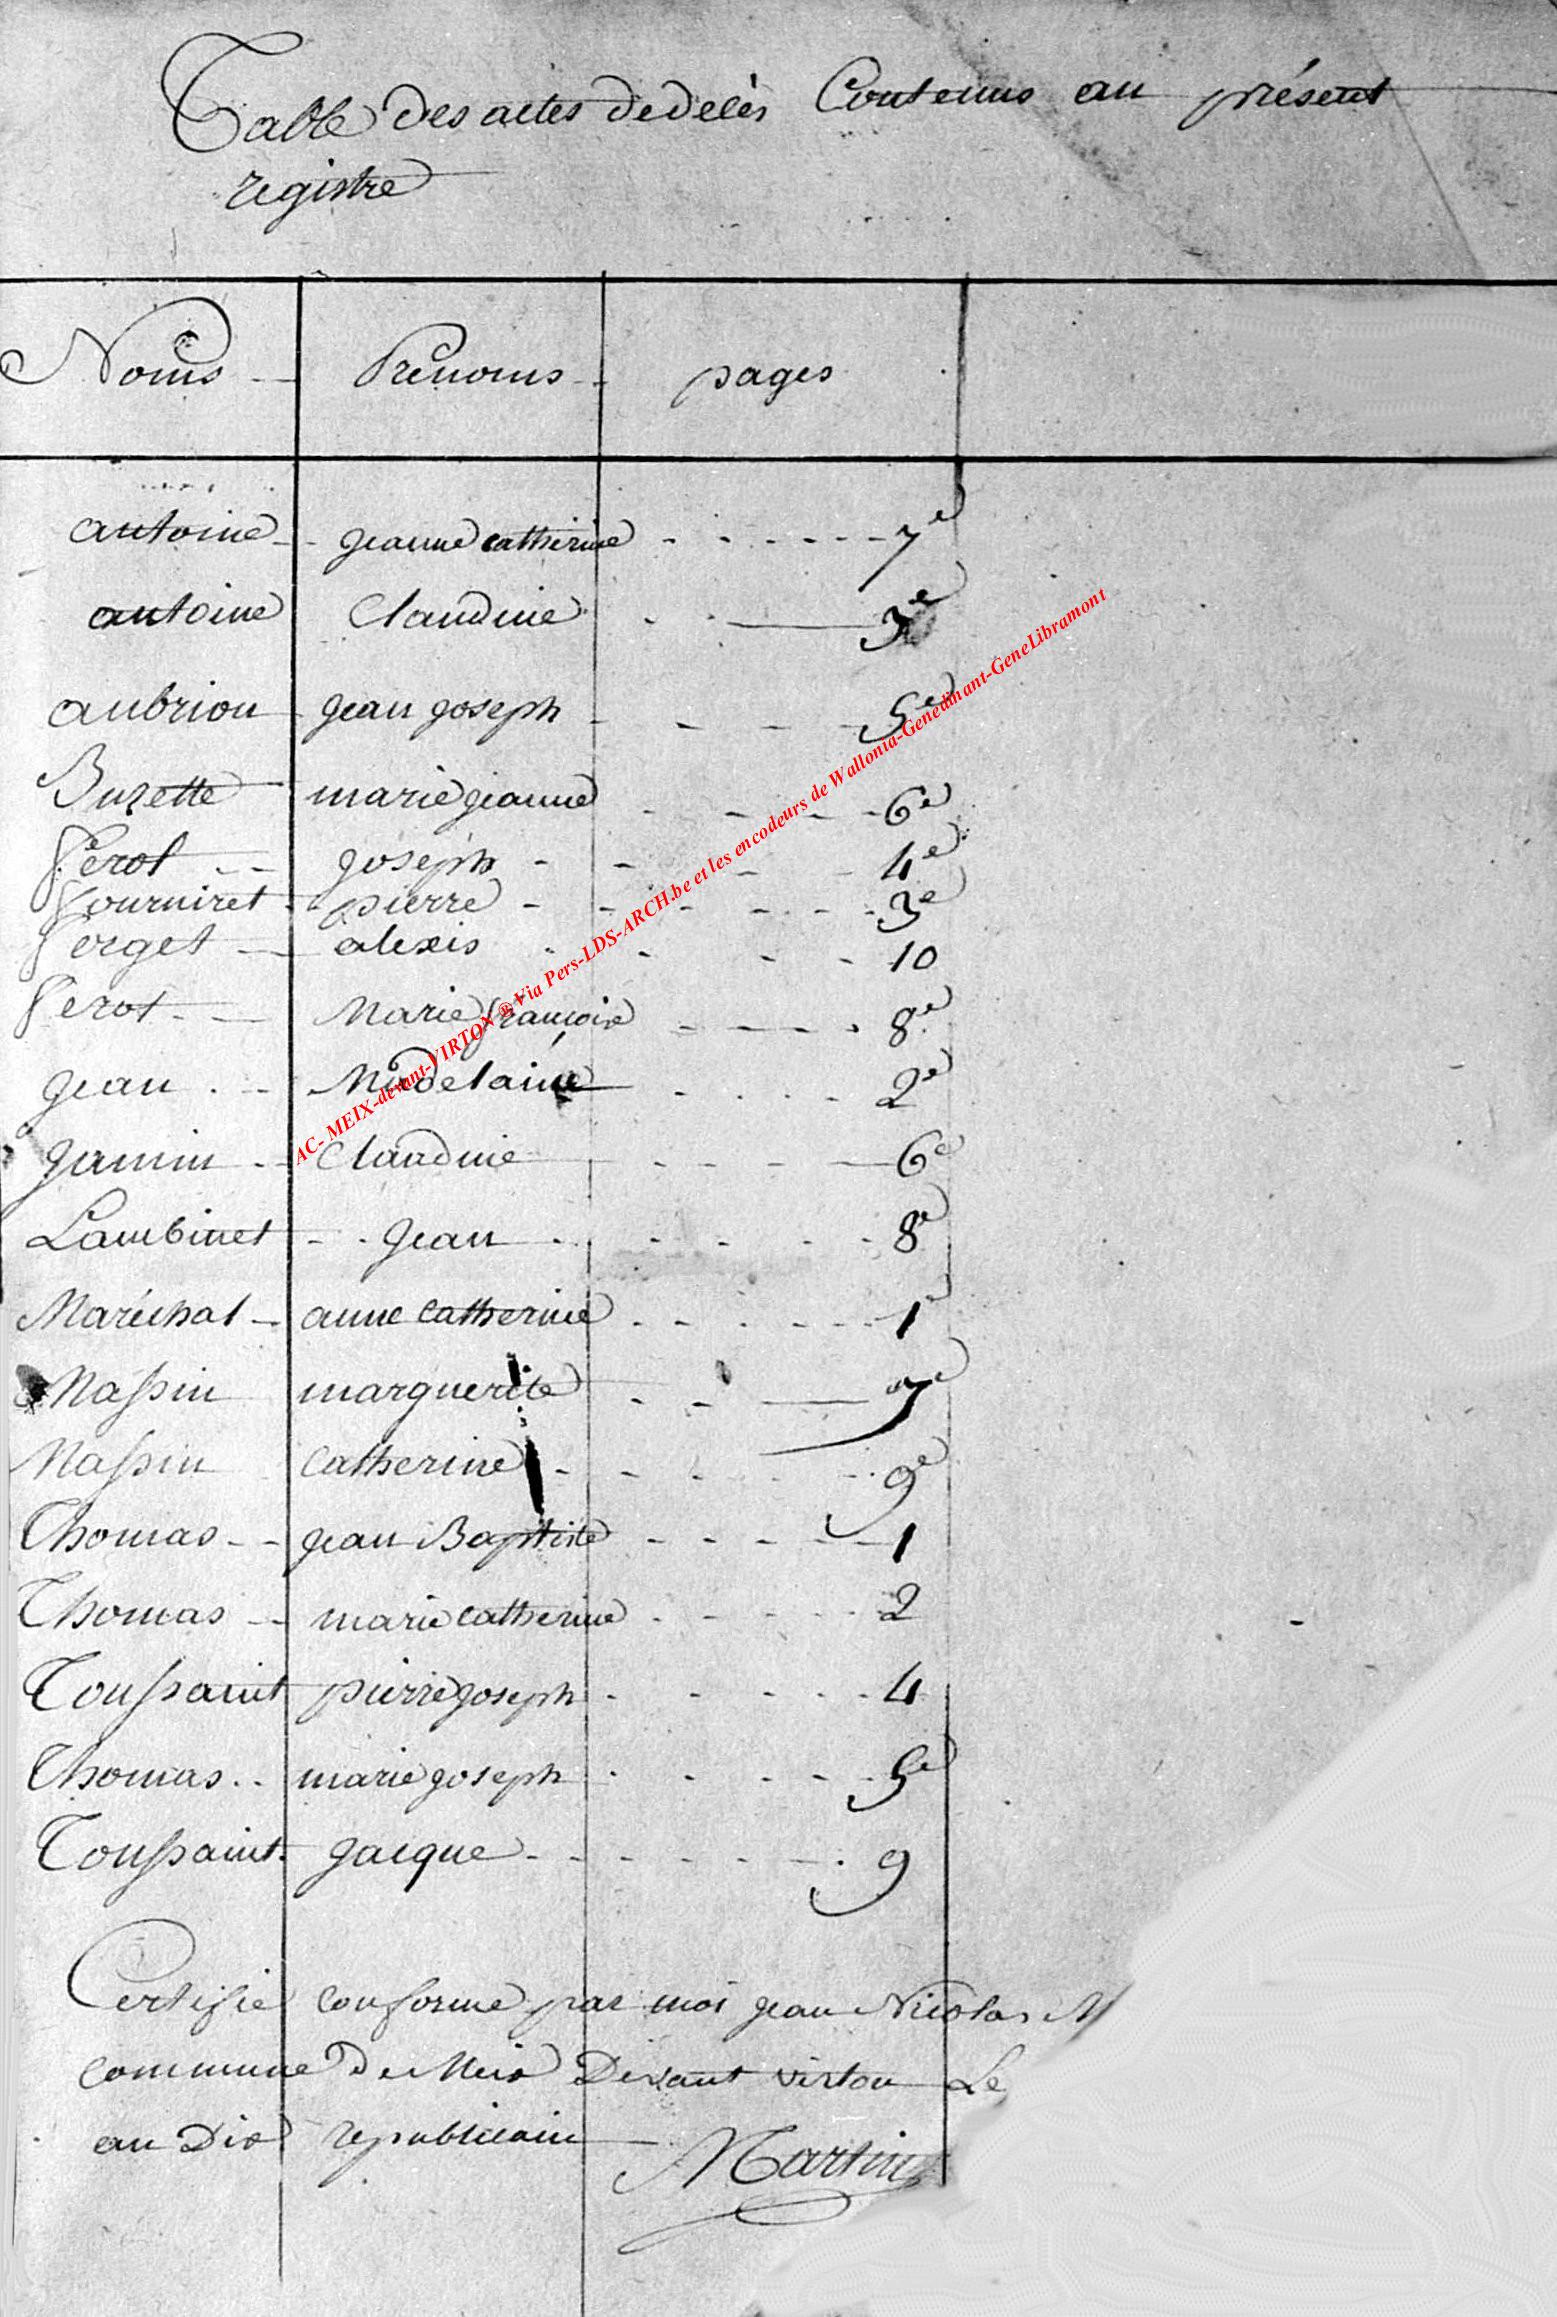 Table des actes de delès Contenus au présent
registre
Noms Prénoms pages
antoine jeanne catherine 7e
antoine Claudine 3e
aubrion jean joseph 5e
Buzette marie jeanne 6e
ferot joseph 4e
fourniret pierre 3e
ferget alexis 10
ferot Marie françoise 8e
jean Madelaine 2e
jamin Claudine 6e
Lambinet jean 8e
Maréchal anne catherine 1e
Massin marguerite 7e
Massin catherine 9e
Thomas jean Baptiste 1
Thomas marie catherine 2
Toussaint pierre joseph 4
Thomas marie joseph 5e
Toussaint jacque 9
Certifié conforme par moi jean Nicolas M
commune De Meix Devant virton Le
an Dix republicain Martin
AC- MEIX-devant-VIRTON ® Via Pers-LDS-ARCH.be et les encodeurs de Wallonia-Genedinant-GeneLibramont